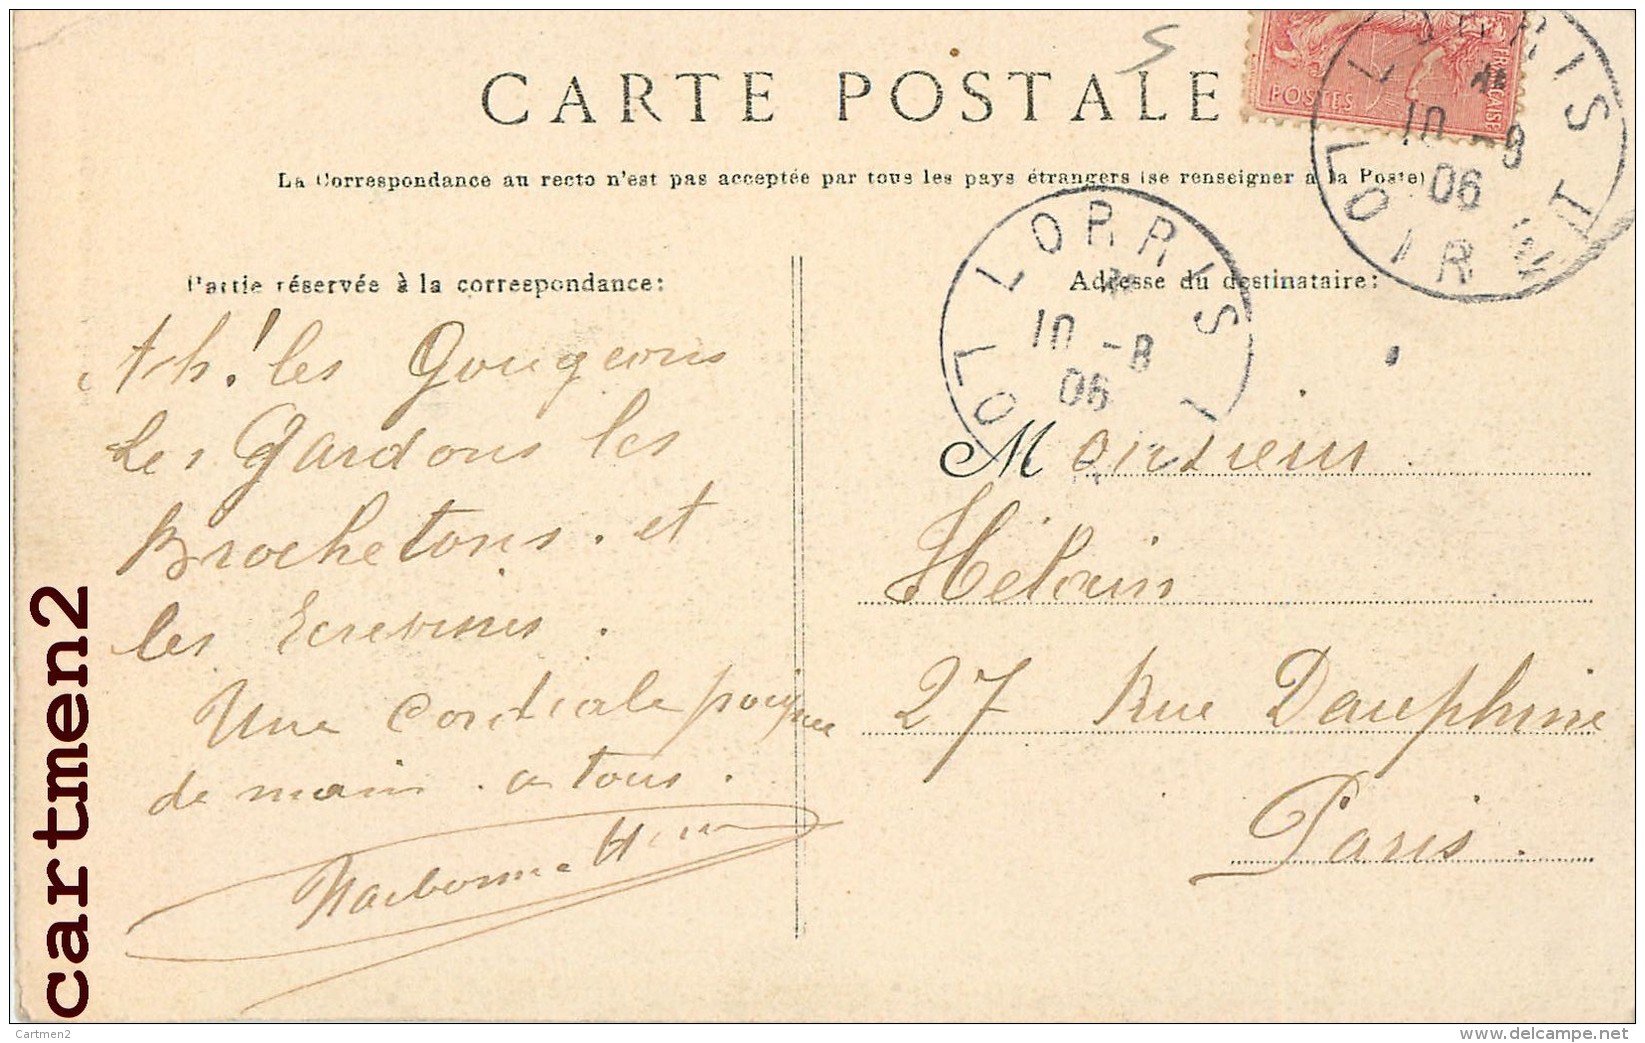 CARTE POSTALE
La Correspondance au recto n'est pas acceptée par tous les pays étrangers (se renseigner à la Poste)
POSTES
FRANÇAISE
LORRIS
10 -8
06
LOIRET
LORRIS
10 -8
06
LOI
Partie réservée à la correspondance:
Ah! les Gougeons
Les Gardons les
Brochetons. et
les Ecrevisses.
Une Cordiale poignee
de main. a tous.
Narbonne
Adresse du destinataire:
Monsieur
Héloin
27 Rue Dauphine
Paris.
cartmen2
Cartmen2
delcampe.net